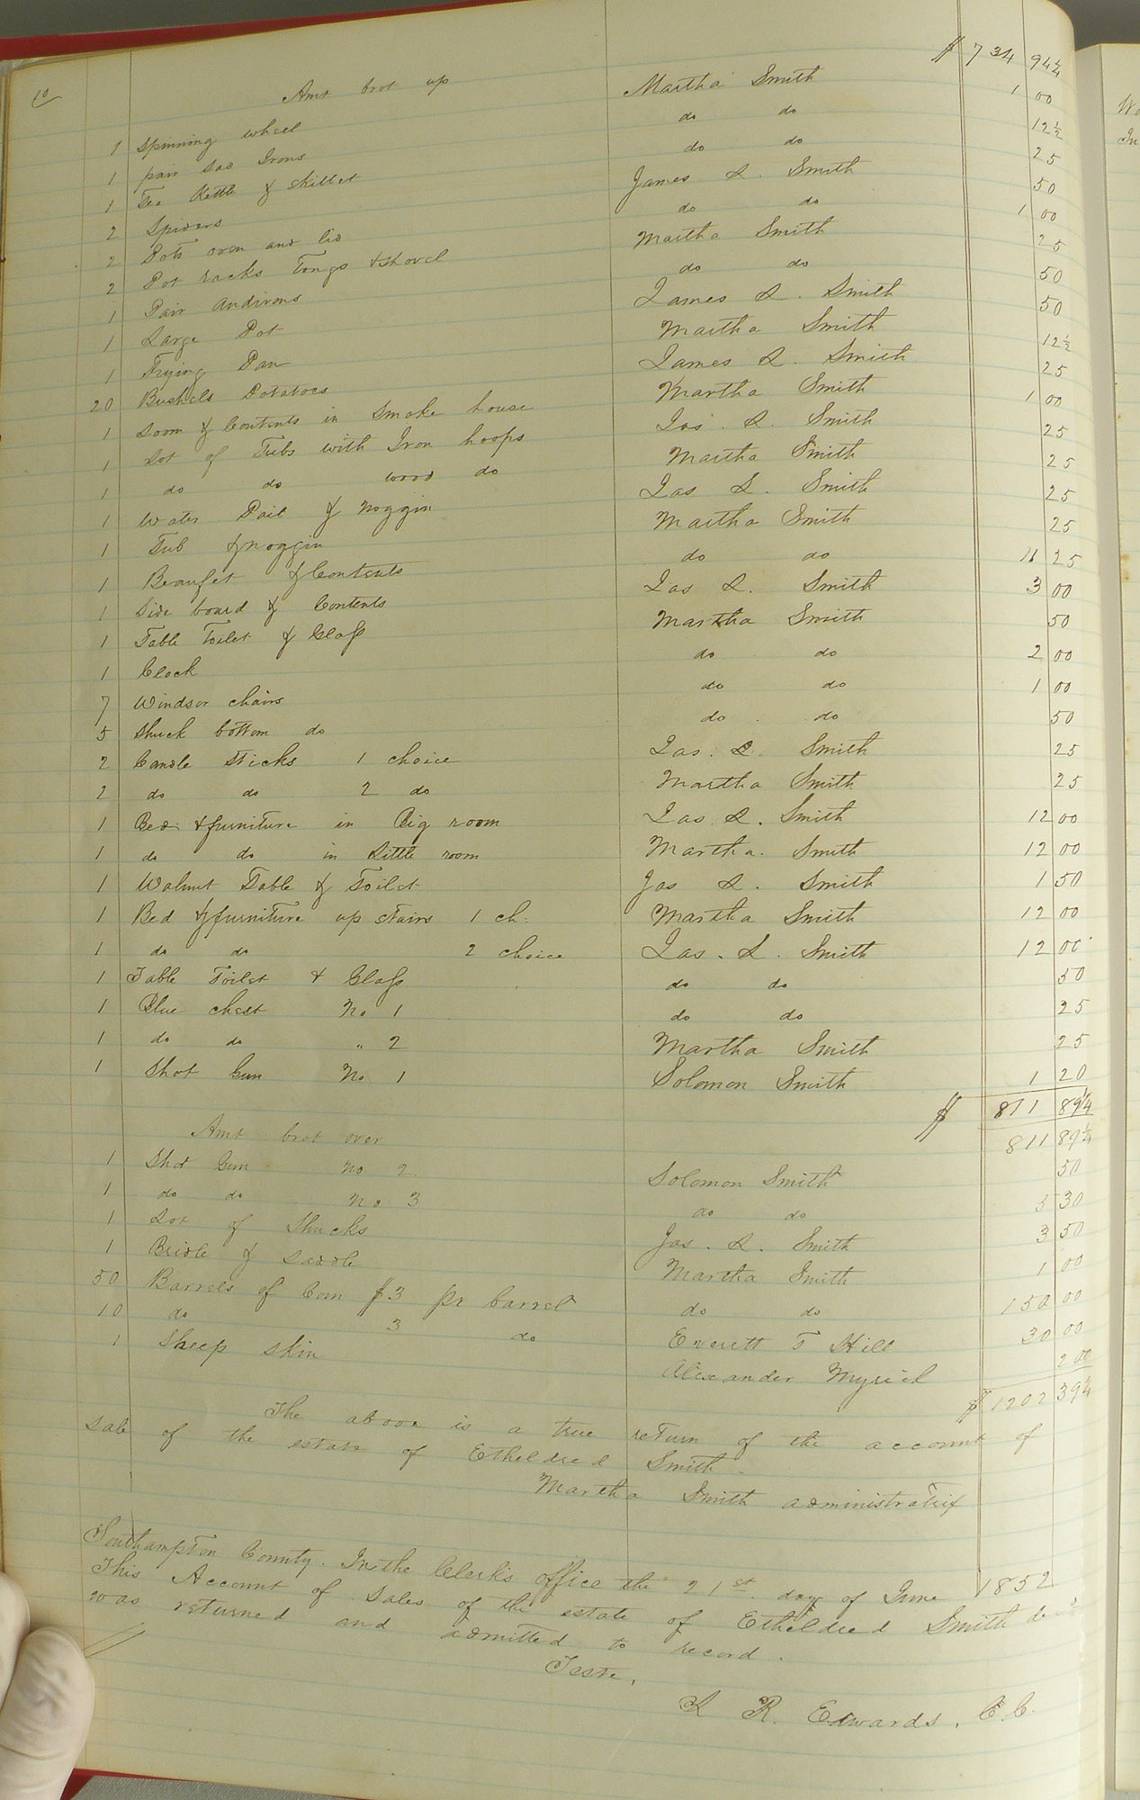 10
Amt brot up $ 734 94¼
1 Spinning wheel Martha Smith 1 00
1 pair Sad Irons do do 12½
1 Tea Kettle & Skillet do do 25
2 Spiders James L. Smith 50
2 Pots oven and lid do do 1 00
2 Pot racks Tongs & Shovel Martha Smith 25
1 Pair Andirons do do 50
1 Large Pot James L. Smith 50
1 Frying Pan Martha Smith 12½
20 Bushels Potatoes James L. Smith 25
1 Loom & Contents in Smoke house Martha Smith 1 00
1 Lot of Tubs with Iron hoops Jas. L. Smith 25
1 do do wood do Martha Smith 25
1 Water Pail & Noggin Jas L. Smith 25
1 Tub & Noggin Martha Smith 25
1 Beaufet & Contents do do 11 25
1 Side board & Contents Jas L. Smith 3 00
1 Table Toilet & Glass Martha Smith 50
1 Clock do do 2 00
7 Windsor chairs do do 1 00
5 Shuck bottom do do do 50
2 Candle Sticks 1 choice Jas. L. Smith 25
2 do do 2 do Martha Smith 25
1 Bed & furniture in Big room Jas L. Smith 12 00
1 do do in Little room Martha Smith 12 00
1 Walnut Table & Toilet Jas L. Smith 1 50
1 Bed & furniture up Stairs 1 ch. Martha Smith 12 00
1 do do 2 choice Jas. L. Smith 12 00
1 Table Toilet & Glass do do 50
1 Blue chest No 1 do do 25
1 do do " 2 Martha Smith 25
1 Shot Gun No 1 Solomon Smith 1 20
$ 811 89¼
Amt brot over 811 89¼
1 Shot Gun No 2 Solomon Smith 50
1 do do No 3 do do 5 30
1 Lot of Shucks Jas. L. Smith 3 50
1 Bridle & Saddle Martha Smith 1 00
50 Barrels of Corn $3 pr barrel do do 150 00
10 do 3 do Everett T Hill 30 00
1 Sheep skin Alexander Myrick 2 00
$ 1202 39¼
The above is a true return of the account of
sale of the estate of Etheldred Smith.
Martha Smith administratrix
Southampton County. In the Clerk's office the 21st day of June 1852
This Account of Sales of the estate of Etheldred Smith decd
was returned and admitted to record.
Teste,
L R. Edwards. C C.